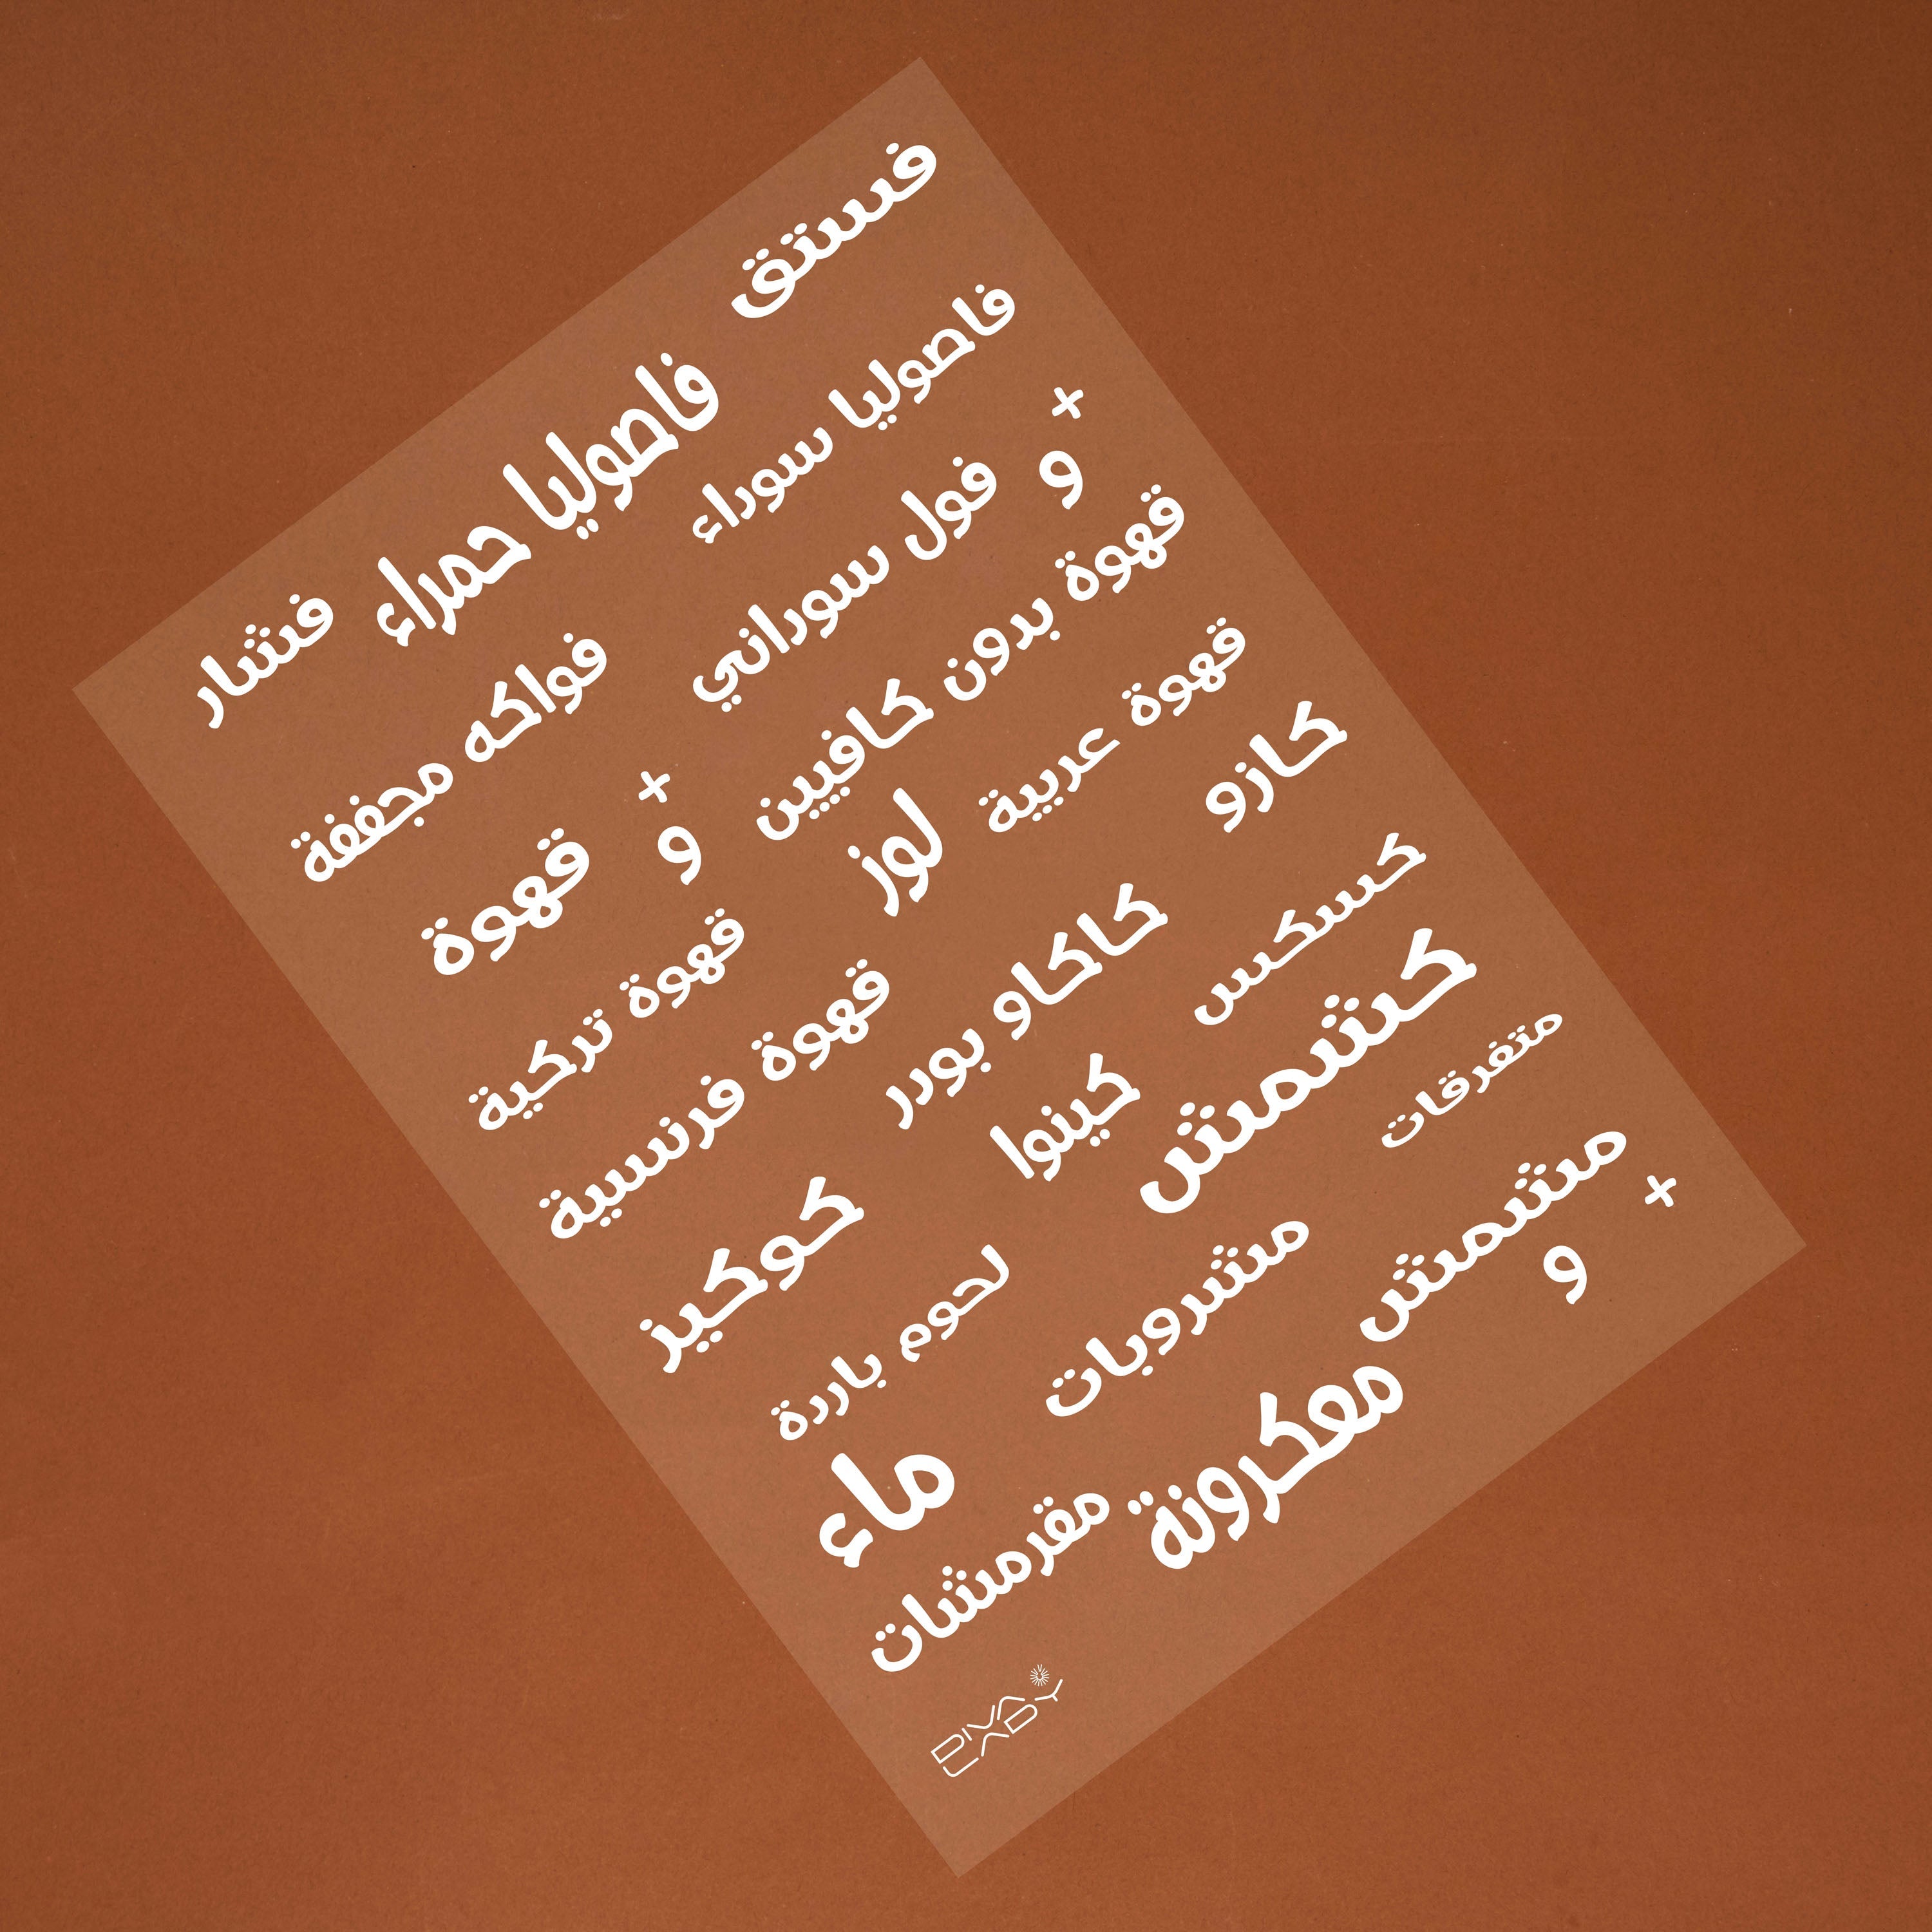 فستق فاصوليا حمراء فشار
فاصوليا سوداء فواكه مجففة
+ و فول سوداني
+ و قهوة
قهوة بدون كافيين قهوة تركية
قهوة عربية لوز قهوة فرنسية
كازو كاكاو بودر كوكيز
كسكس كينوا لحوم باردة
كشمش
متفرقات مشروبات ماء
مشمش مقرمشات
+ و معكرونة
DIVA LADY